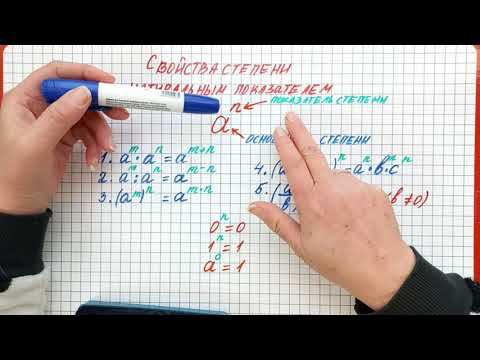 СВОЙСТВА СТЕПЕНИ
НАТУРАЛЬНЫМ ПОКАЗАТЕЛЕМ
aⁿ ПОКАЗАТЕЛЬ СТЕПЕНИ
СТЕПЕНИ
1. aᵐ · aⁿ = aᵐ⁺ⁿ
2. aᵐ : aⁿ = aᵐ⁻ⁿ
3. (aᵐ)ⁿ = aᵐ˙ⁿ
4. (a )ⁿ = aⁿ · bⁿ · cⁿ
5. (a/b (b ≠ 0)
0ⁿ = 0
1ⁿ = 1
a⁰ = 1